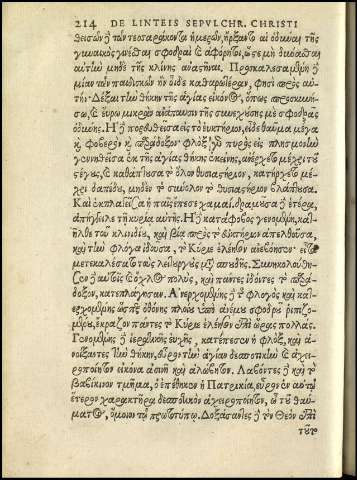 214 DE LINTEIS SEPVLCHR. CHRISTI
θεισῶν δὲ τῶν τεσσαράκοντα ἡμερῶν, ἤρξαντο αἱ ὀδύναι τῆς
γυναικὸς γενέσθαι σφοδραὶ καὶ ἀφόρητοι, ὥστε μὴ δύνασθαι
αὐτὴν μηδὲ τῆς κλίνης ἀναστῆναι. Προσκαλεσαμένη δὲ
μίαν τῶν παιδισκῶν ἣν οἶδε καθαρωτέραν, φησὶ πρὸς αὐ-
τήν· Δέξαι τὴν θήκην τῆς ἁγίας εἰκόνος, ὅπως προσκυνή-
σω, καὶ εὕρω μικρὰν ἀνάπαυσιν τῆς συνεχούσης με σφοδρᾶς
ὀδύνης. Ἡ δὲ πορευθεῖσα εἰς τὸ εὐκτήριον, εἶδε θαῦμα μέγα
καὶ φοβερὸν καὶ παράδοξον· φλὸξ γὰρ πυρὸς εἰς πλησμονὴν
γεννηθεῖσα ἐκ τῆς ἁγίας θήκης ἐκείνης, ἀνέρχετο μέχρι τοῦ
στέγους, καὶ καθάπτουσα τὸ ὅλον θυσιαστήριον, κατήρχετο μέ-
χρι δαπέδου, μηδὲν τὸ σύνολον τὸ θυσιαστήριον βλάπτουσα.
Καὶ ἐκπλαγεῖσα ἡ παῖς ἔπεσε χαμαί, δραμοῦσα δὲ ἑτέρα,
ἀπήγγειλε τῇ κυρίᾳ αὐτῆς. Ἡ δὲ κατάφοβος γενομένη, κατ-
ῆλθε τοῦ κλινιδίου, καὶ βίᾳ πρὸς τὸ εὐκτήριον ἀπελθοῦσα,
καὶ τὴν φλόγα ἰδοῦσα, τὸ Κύριε ἐλέησον ἀνεβόησεν· εἶτα
μετεκαλέσατο τοὺς λειτουργοὺς μετὰ σπουδῆς. Συνηκολούθη-
σεν δὲ αὐτοῖς καὶ ὄχλος πολὺς, καὶ πάντες ἰδόντες τὸ παρά-
δοξον, κατεπλάγησαν. Ἀνερχομένης δὲ τῆς φλογὸς καὶ κατ-
ερχομένης ὥσπερ ὀθόνης πλοίου ὑπὸ ἀνέμου σφοδροῦ ῥιπιζο-
μένης, ἔκραζον πάντες τὸ Κύριε ἐλέησον ἐπὶ ὥρας πολλάς.
Γενομένης δὲ ἱερατικῆς εὐχῆς, κατέπεσεν ἡ φλὸξ, καὶ ἀ-
νοίξαντες τὴν θήκην, εὗρον τὴν ἁγίαν δεσποτικὴν καὶ ἀχει-
ροποίητον εἰκόνα ἀσινῆ καὶ ἀλώβητον. Λαβόντες δὲ καὶ τὸ
βαβίκινον τμῆμα, ὃ ἐπέθηκεν ἡ Πατρικία, εὗρον ἐν αὐτῷ
ἕτερον χαρακτῆρα δεσποτικὸν ἀχειροποίητον, ὢ τοῦ θαύμα-
τος, ὅμοιον τῷ πρωτοτύπῳ. Δοξάσαντες δὲ τὸν Θεὸν ἐπὶ
τού-